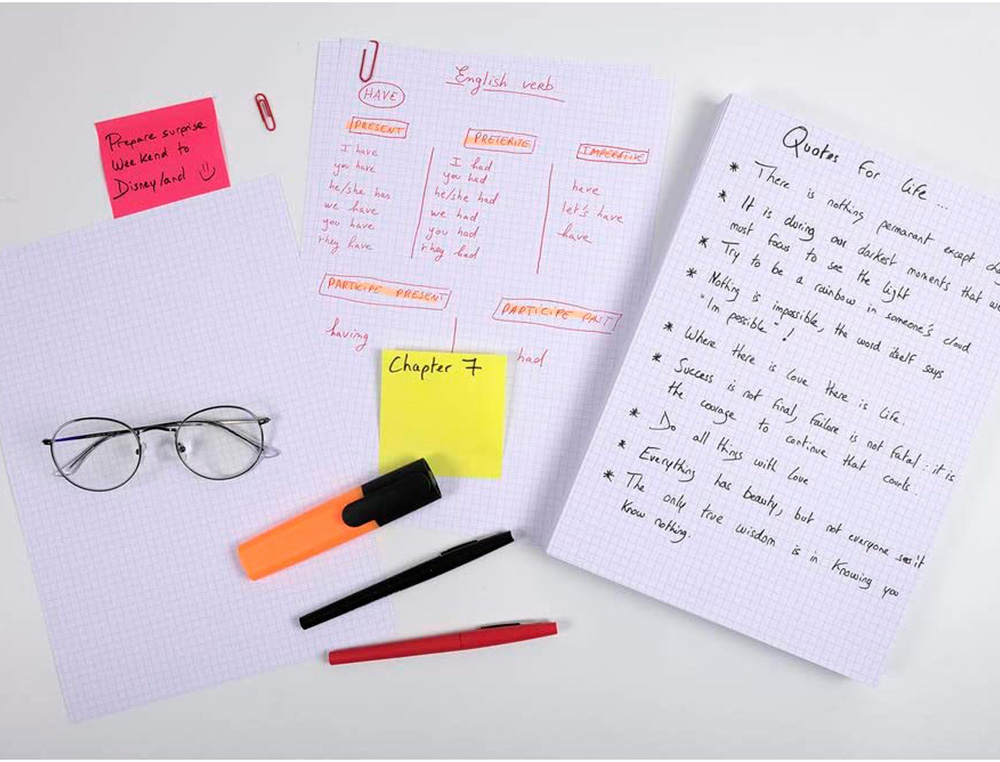 Prepare surprise
Weekend to
Disneyland
English verb
HAVE
PRESENT
I have
you have
he/she has
we have
you have
they have
PRETERITE
I had
you had
he/she had
we had
you had
they had
IMPERATIVE
have
let's have
have
PARTICIPE PRESENT
having
PARTICIPE PAST
had
Chapter 7
Quotes For life ....
* There is nothing permanant except
* It is during our darkest moments that we
most focus to see the light
* Try to be a rainbow in someone's cloud
* Nothing is impossible, the word itself says
"I'm possible" !
* Where there is love there is life.
* Success is not final, failure is not fatal : it is
the courage to continue that courts.
* Do all things with love
* Everything has beauty, but not everyone sees it
* The only true wisdom is in knowing you
know nothing.